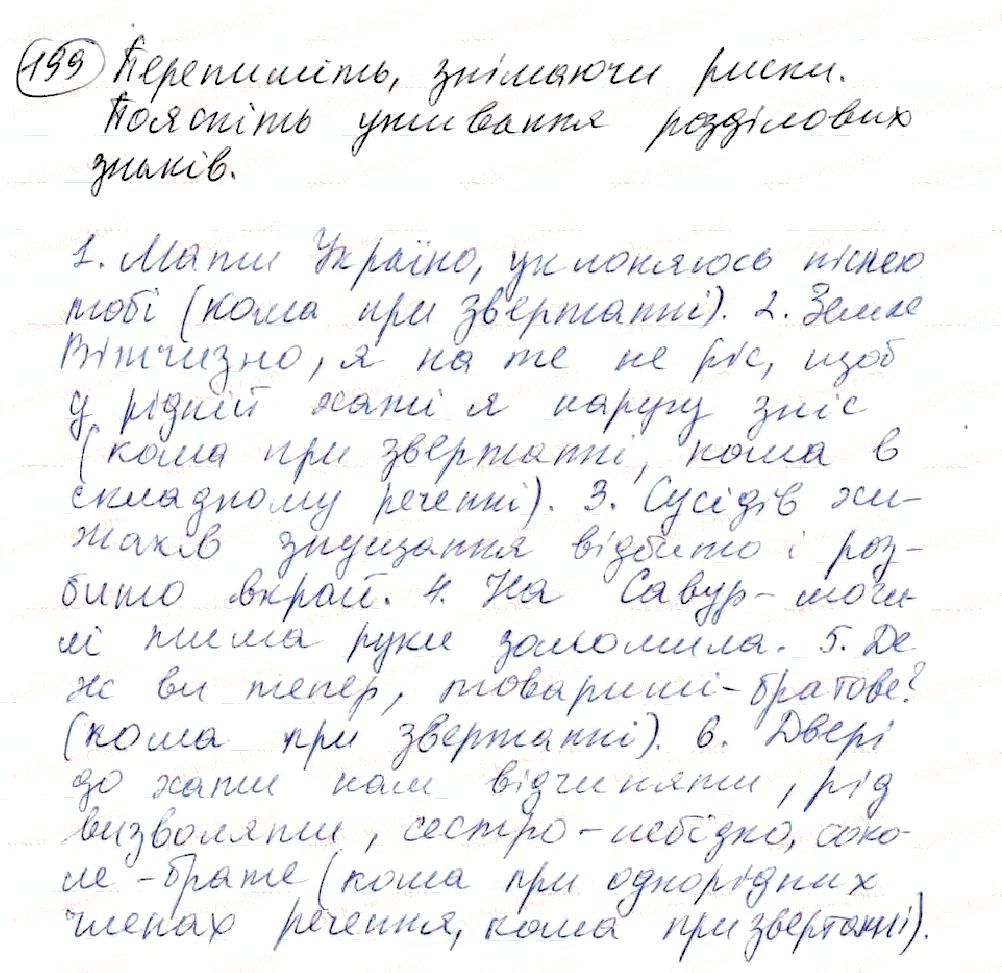 199 Перепишіть, знімаючи риски.
Поясніть уживання розділових
знаків.
1. Мати Україно, уклоняюсь піснею
тобі (кома при звертанні). 2. Земле
Вітчизно, я на те не ріс, щоб
у рідній хаті я наругу зніс
(кома при звертанні, кома в
складному реченні). 3. Сусідів хи-
жаків знущання відбито і роз-
бито вкрай. 4. На Савур-моги-
лі тиша руки заломила. 5. Де
ж ви тепер, товариші-братове?
(кома при звертанні). 6. Двері
до хати нам відчиняти, рід
визволяти, сестро-небідно, соко-
ле-брате (кома при однорідних
членах речення, кома при звертанні).